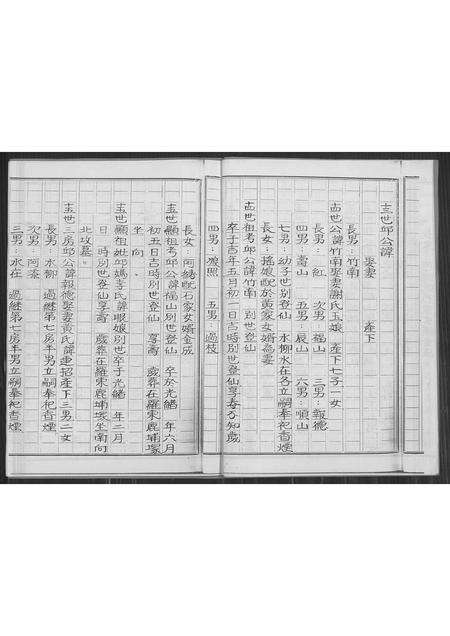 十三世邱公諱
娶妻 產下
長男：竹南
十四世公諱竹南娶妻謝氏玉娘 產下七子一女
長男：紅 次男：福山 三男：報德
四男：嵩山 五男：辰山 六男：順山
七男：幼子世別登仙 水柳水在各立嗣奉祀香煙
長女：搖娘配於黃家女婿為妻
十四世祖考邱公諱竹南 別世登仙
卒于吉年五月初一日吉時別世登仙享壽不知歲
四男：娘照 五男：過枝
長女：阿綉配石家女婿金成
十五世顯祖考邱公諱福山別世登仙 卒於光緒 年六月
初五日吉時別世登仙 享壽 歲葬在羅東鹿埔塚
坐向．
十五世顯祖妣邱媽李氏諱眼娘別世卒于光緒 年二月
日 時別世登仙享壽 歲葬在羅東鹿埔塚坐南向
北攻墓．
十五世三房邱公諱報德娶妻黃氏諱連招產下三男二女
長男：水柳 過繼第七房半男立嗣奉祀香煙
次男：阿添
三男：水在 過繼第七房半男立嗣奉祀香煙